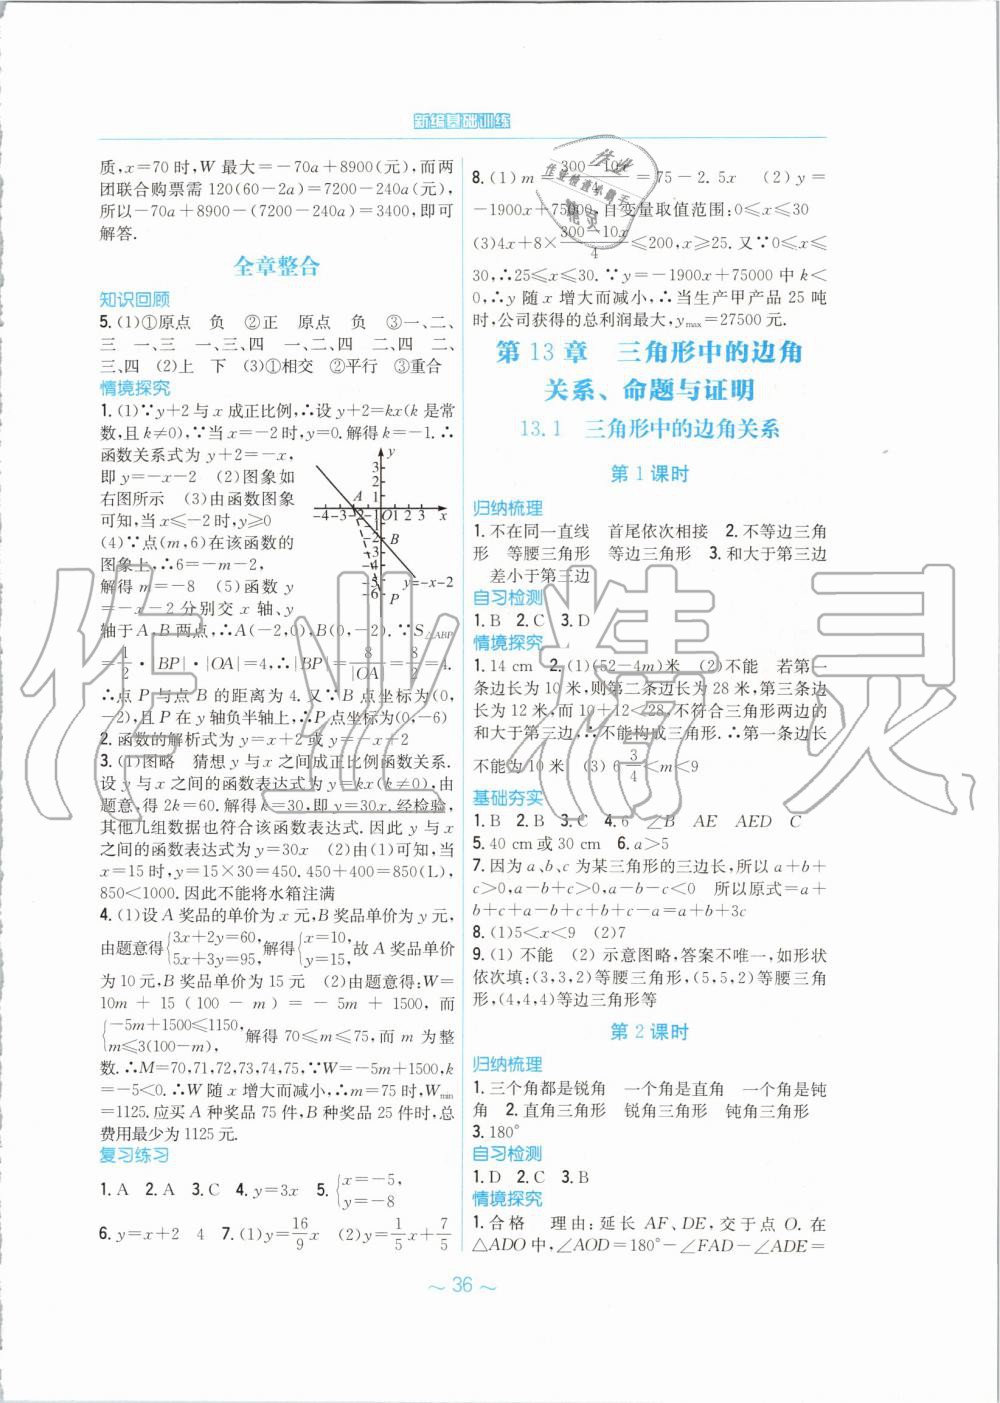 新编基础训练
质,x=70时,W最大=-70a+8900(元),而两
团联合购票需120(60-2a)=7200-240a(元),
所以-70a+8900-(7200-240a)=3400,即可
解答.
全章整合
知识回顾
5.(1)①原点 负 ②正 原点 负 ③一、二、
三 一、三 一、三、四 一、二、四 二、四 二、
三、四 (2)上 下 (3)①相交 ②平行 ③重合
情境探究
1.(1)∵y+2与x成正比例,∴设y+2=kx(k是常
数,且k≠0),∵当x=-2时,y=0.解得k=-1.∴
函数关系式为y+2=-x,
即y=-x-2 (2)图象如
右图所示 (3)由函数图象
可知,当x≤-2时,y≥0
(4)∵点(m,6)在该函数的
图象上,∴6=-m-2,
解得m=-8 (5)函数y
=-x-2分别交x轴、y
轴于A、B两点,∴A(-2,0),B(0,-2).∵S△ABP
=1/2·|BP|·|OA|=4,∴|BP|=8/|OA|=8/2=4.
∴点P与点B的距离为4.又∵B点坐标为(0,
-2),且P在y轴负半轴上,∴P点坐标为(0,-6)
2.函数的解析式为y=x+2或y=-x+2
3.(1)图略 猜想y与x之间成正比例函数关系.
设y与x之间的函数表达式为y=kx(k≠0),由
题意,得2k=60.解得k=30,即y=30x.经检验,
其他几组数据也符合该函数表达式.因此y与x
之间的函数表达式为y=30x (2)由(1)可知,当
x=15时,y=15×30=450.450+400=850(L),
850<1000.因此不能将水箱注满
4.(1)设A奖品的单价为x元,B奖品单价为y元,
由题意得{3x+2y=60, 5x+3y=95,解得{x=10, y=15,故A奖品单价
为10元,B奖品单价为15元 (2)由题意得:W=
10m+15(100-m)=-5m+1500,而
{-5m+1500≤1150, m≤3(100-m),解得70≤m≤75,而m为整
数.∴M=70,71,72,73,74,75,∵W=-5m+1500,k
=-5<0.∴W随x增大而减小,∴m=75时,Wmin
=1125.应买A种奖品75件,B种奖品25件时,总
费用最少为1125元.
复习练习
1.A 2.A 3.C 4.y=3x 5.{x=-5, y=-8
6.y=x+2 4 7.(1)y=16/9x (2)y=1/5x+7/5
y
3
2
1
A
-4-3-2-1 O 1 2 3 x
B
-2
-3
-4
-5
-6
P
y=-x-2
8.(1)m=(300-10x)/4=75-2.5x (2)y=
-1900x+75000,自变量取值范围:0≤x≤30
(3)4x+8×(300-10x)/4≤200,x≥25.又∵0≤x≤
30,∴25≤x≤30.∵y=-1900x+75000中k<
0,∴y随x增大而减小,∴当生产甲产品25吨
时,公司获得的总利润最大,ymax=27500元.
第13章 三角形中的边角
关系、命题与证明
13.1 三角形中的边角关系
第1课时
归纳梳理
1.不在同一直线 首尾依次相接 2.不等边三角
形 等腰三角形 等边三角形 3.和大于第三边
差小于第三边
自习检测
1.B 2.C 3.D
情境探究
1.14 cm 2.(1)(52-4m)米 (2)不能 若第一
条边长为10米,则第二条边长为28米,第三条边
长为12米,而10+12<28,不符合三角形两边的
和大于第三边,∴不能构成三角形.∴第一条边长
不能为10米 (3)6 3/4<m<9
基础夯实
1.B 2.B 3.C 4.6 ∠B AE AED C
5.40 cm或30 cm 6.a>5
7.因为a、b、c为某三角形的三边长,所以a+b+
c>0,a-b+c>0,a-b-c<0 所以原式=a+
b+c+a-b+c+b+c-a=a+b+3c
8.(1)5<x<9 (2)7
9.(1)不能 (2)示意图略,答案不唯一,如形状
依次填:(3,3,2)等腰三角形,(5,5,2)等腰三角
形,(4,4,4)等边三角形等
第2课时
归纳梳理
1.三个角都是锐角 一个角是直角 一个角是钝
角 2.直角三角形 锐角三角形 钝角三角形
3.180°
自习检测
1.D 2.C 3.B
情境探究
1.合格 理由:延长AF、DE,交于点O.在
△ADO中,∠AOD=180°-∠FAD-∠ADE=
~ 36 ~
作业精灵